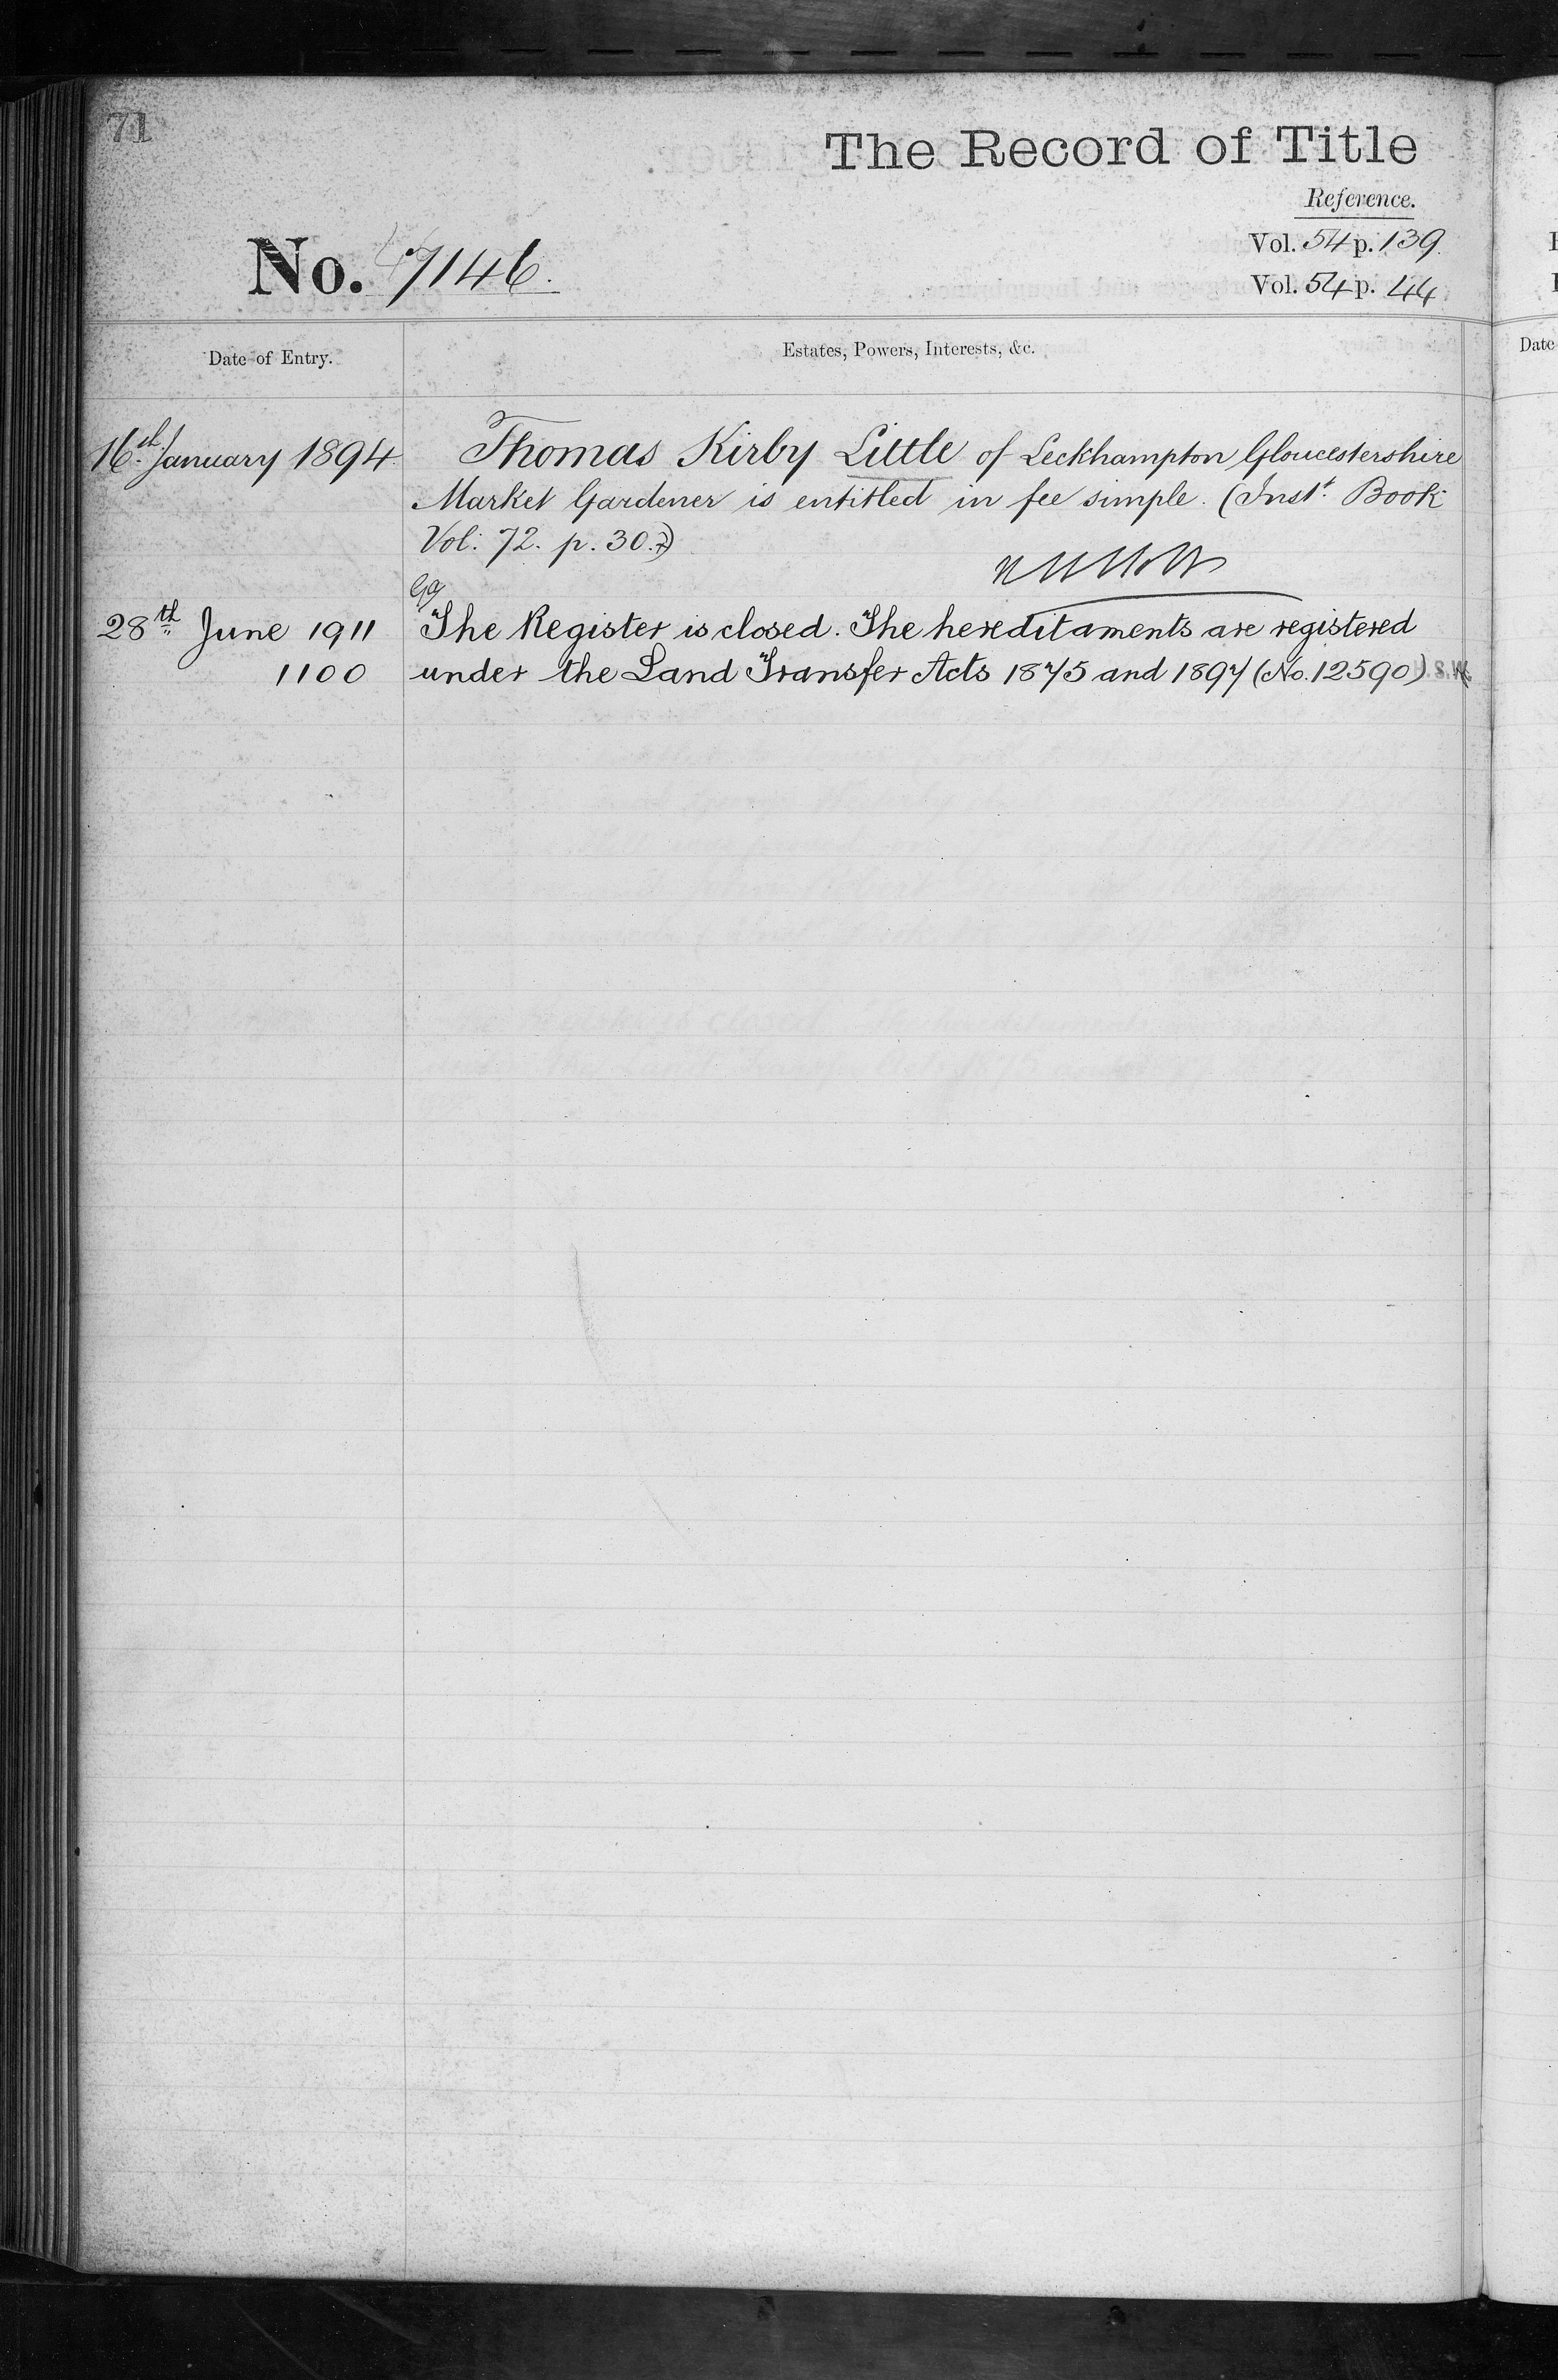 71
The Record of Title
Reference.
No. 7146.
Vol. 54 p. 139.
Vol. 54 p. 44
Date of Entry.
Estates, Powers, Interests, &c.
Date
16th January 1894.
Thomas Kirby Little of Leckhampton Gloucestershire
Market Gardener is entitled in fee simple. (Inst. Book
Vol: 72. p. 30.)
28th June 1911
The Register is closed. The hereditaments are registered
1100
under the Land Transfer Acts 1875 and 1897 (No. 12590)